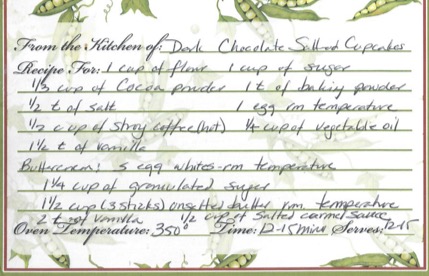 From the Kitchen of: Dark Chocolate Salted Cupcakes
Recipe For: 1 cup of flour 1 cup of sugar
1/3 cup of Cocoa powder 1 t of baking powder
1/2 t of salt 1 egg rm temperature
1/2 cup of strong coffee (hot) 1/4 cup of vegetable oil
1 1/2 t of vanilla
Buttercream: 5 egg whites-rm temperature
1 1/4 cup of granulated sugar
1 1/2 cup (3 sticks) unsalted butter rm. temperature
2 t of vanilla 1/2 cup of salted carmel sauce
Oven Temperature: 350° Time: 12-15 mins Serves: 12-15